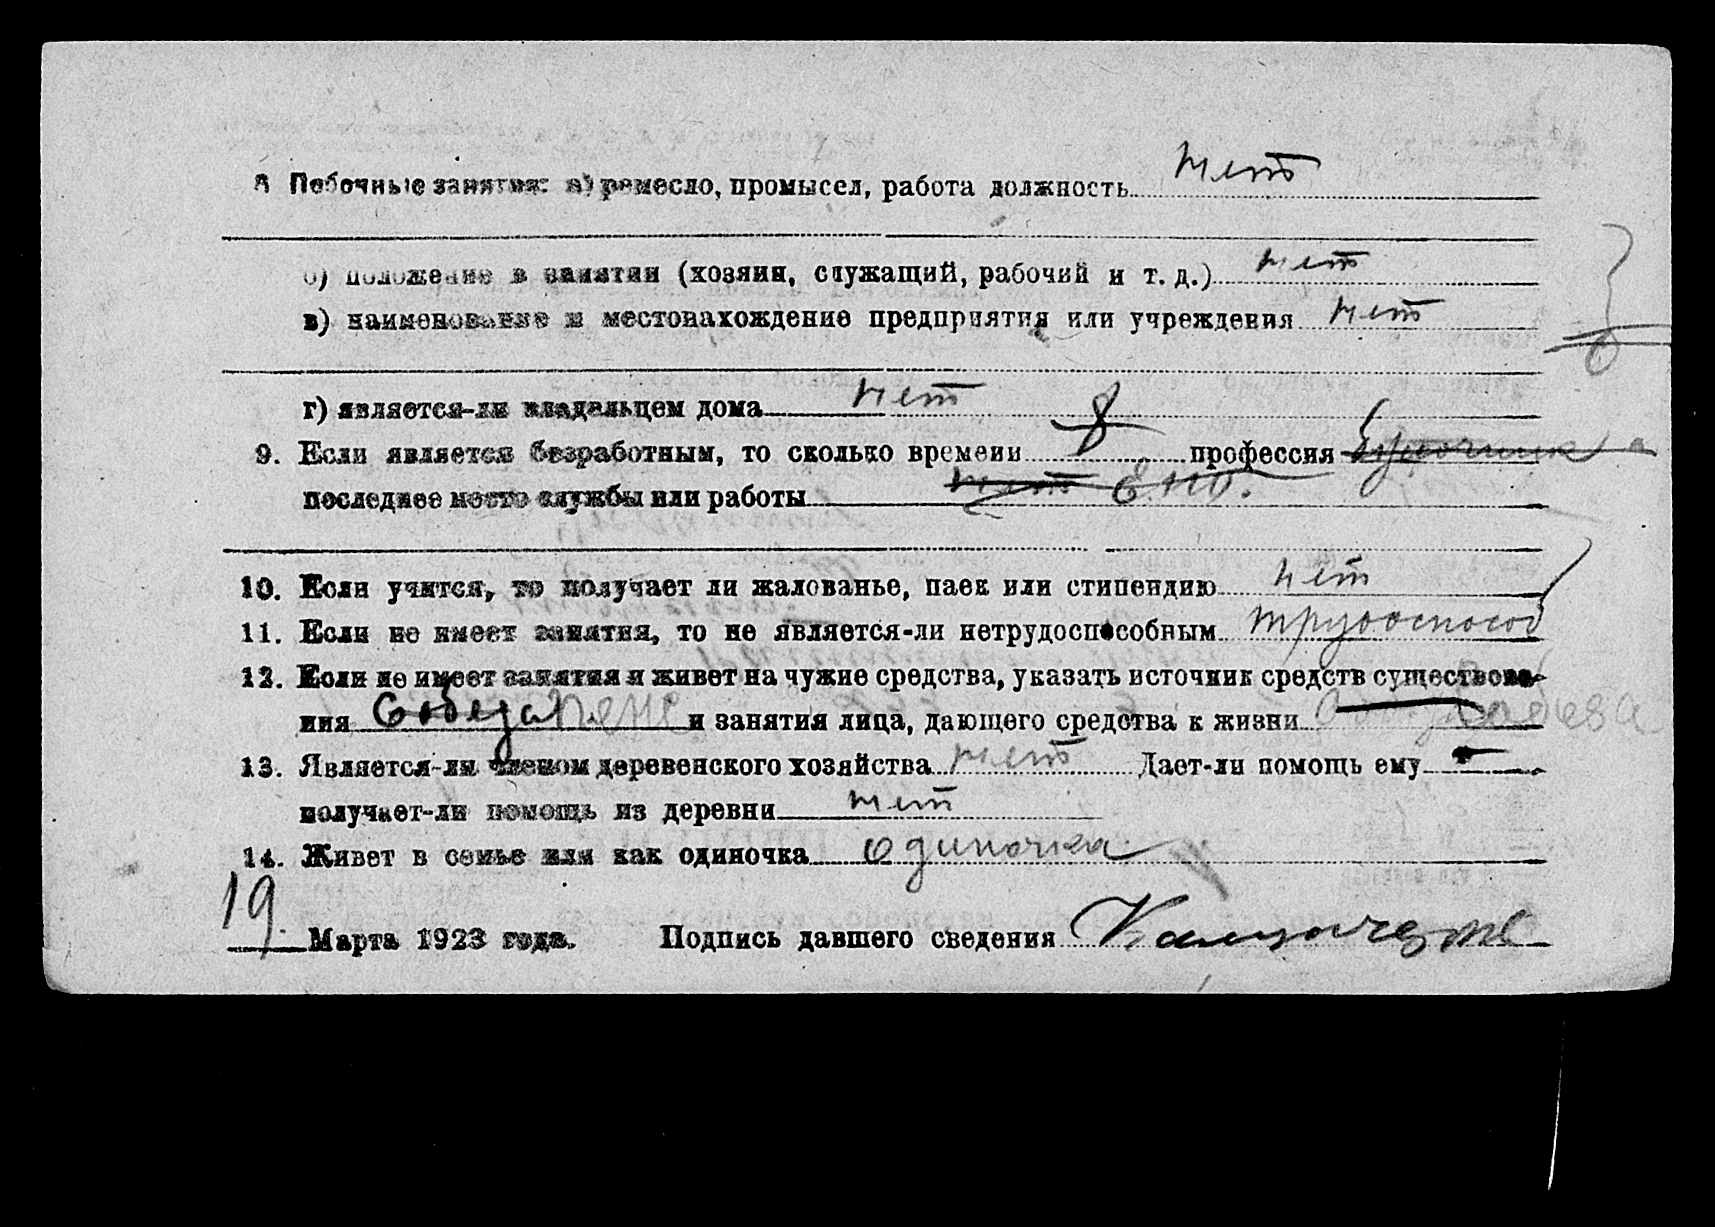 8 Побочные занятия: а) ремесло, промысел, работа должность нет
б) положение в занятии (хозяин, служащий, рабочий и т. д.) нет
в) наименование и местонахождение предприятия или учреждения нет
г) является-ли владельцем дома нет
9. Если является безработным, то сколько времени профессия
последнее место службы или работы нет
10. Если учится, то получает ли жалованье, паек или стипендию нет
11. Если не имеет занятия, то не является-ли нетрудоспособным трудоспособ
12. Если не имеет занятия и живет на чужие средства, указать источник средств существова-
ния и занятия лица, дающего средства к жизни
13. Является-ли членом деревенского хозяйства нет Дает-ли помощь ему
получает-ли помощь из деревни нет
14. Живет в семье или как одиночка одиночка
19 Марта 1923 года. Подпись давшего сведения